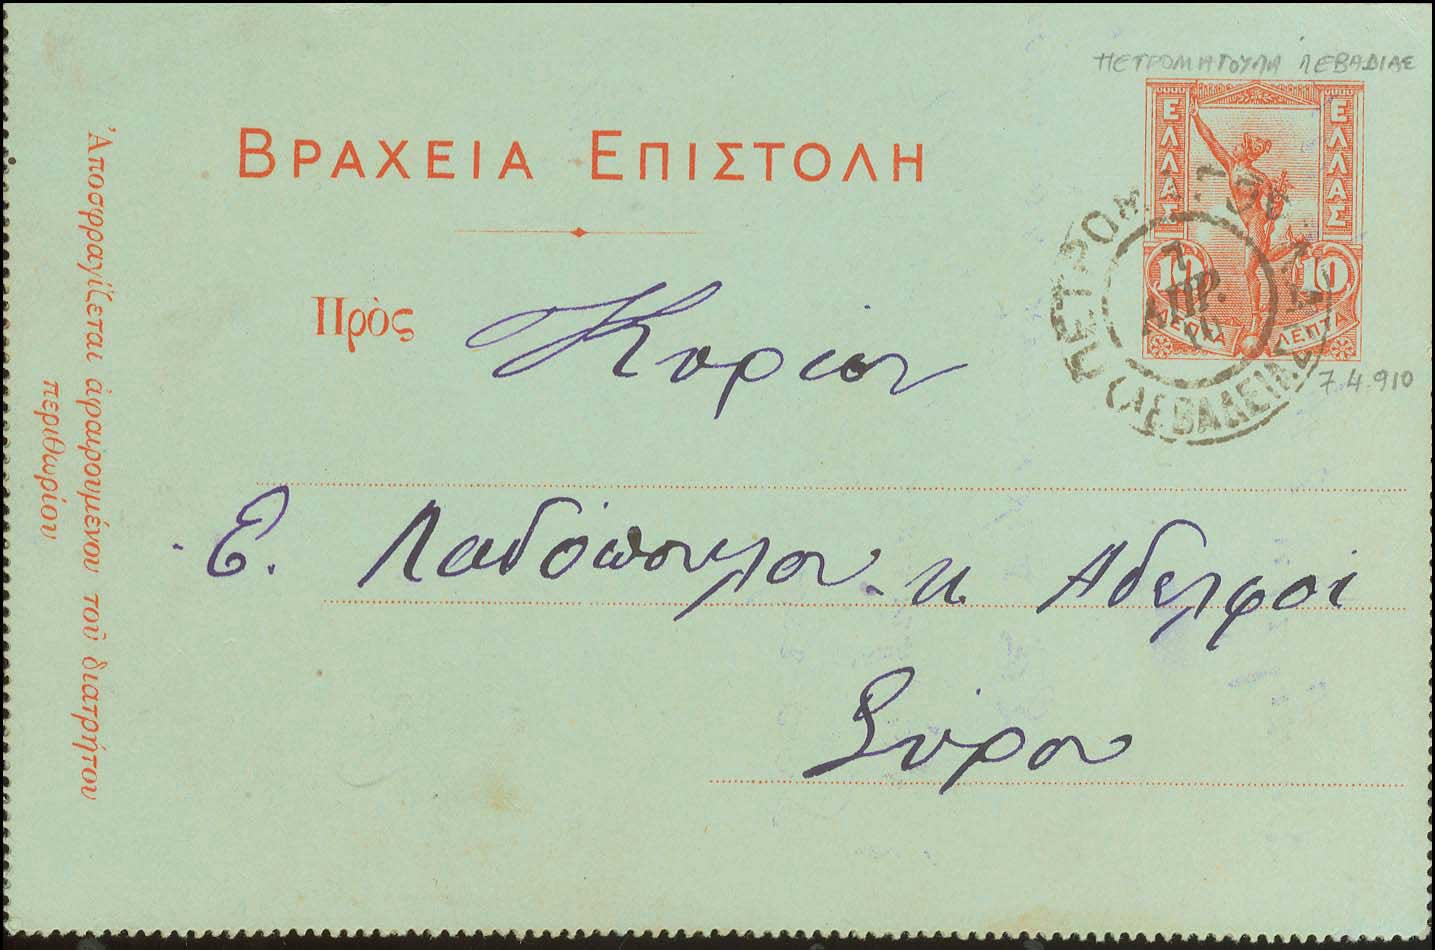 ΠΕΤΡΟΜΑΓΟΥΛΑ ΛΕΒΑΔΙΑΣ
ΒΡΑΧΕΙΑ ΕΠΙΣΤΟΛΗ
ΕΛΛΑΣ ΕΛΛΑΣ
10 10
ΛΕΠΤΑ ΛΕΠΤΑ
ΠΕΤΡΟΜ
7
ΑΠΡ.
10
(ΛΕΒΑΔΕΙΑΣ)
7.4.910
Πρὸς Κυρίον
Ε. Λαδόπουλον κ Αδελφοί
Σύρον
Ἀποσφραγίζεται ἀφαιρουμένου τοῦ διατρήτου
περιθωρίου